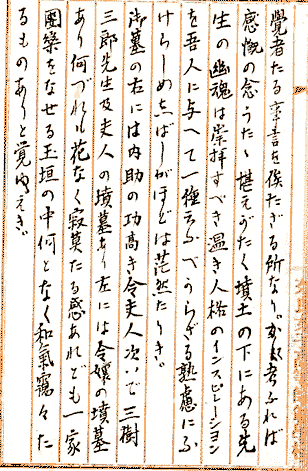 覺者たる京吾を俟たざる所なり。かく考ふれば
感慨の念うたゝ堪えがたく墳土の下にある先
生の幽魂は崇拝すべき温き人格のインスピレーション
を吾人に与へて一種云ふべからざる熟慮にふ
けらしめ志ばしがほどは茫然たりき。
御墓の右には内助の功高き令夫人次いで三樹
三郎先生及夫人の墳墓あり左には令嬢の墳墓
あり何づれも花なく寂莫たる感あれども一家
團欒をなせる玉垣の中何となく和氣靄々た
るものありと覚ゆえき。